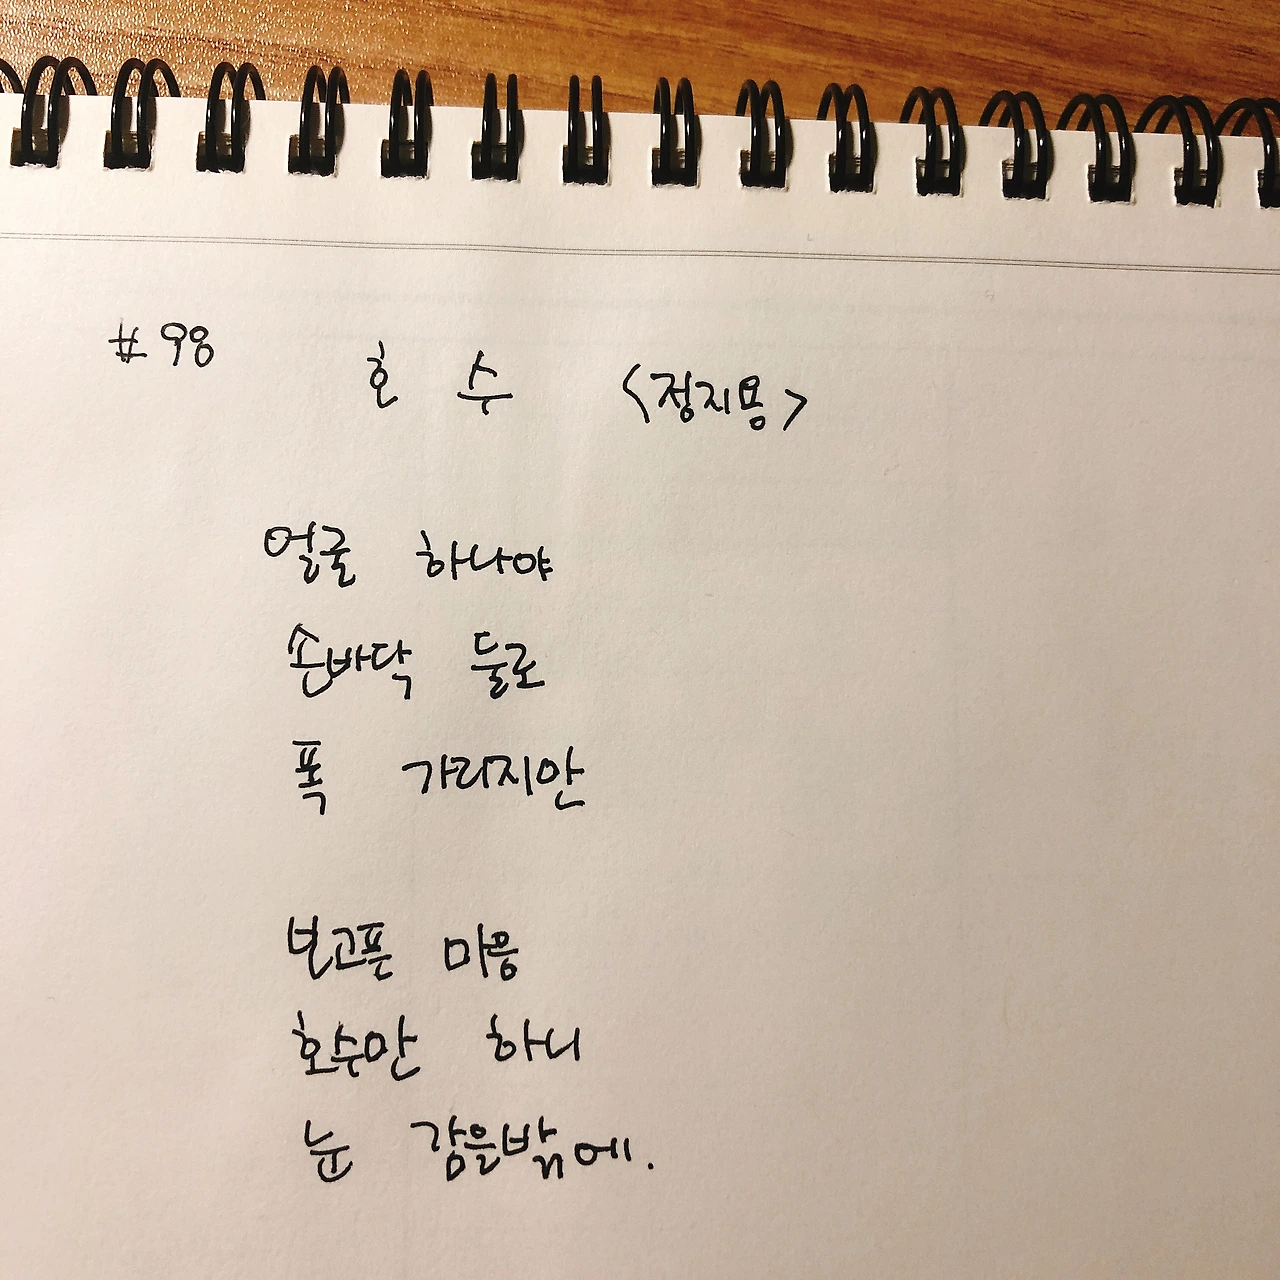 #98 호 수 <정지용>
얼굴 하나야
손바닥 둘로
폭 가리지만
보고픈 마음
호수만 하니
눈 감을밖에.